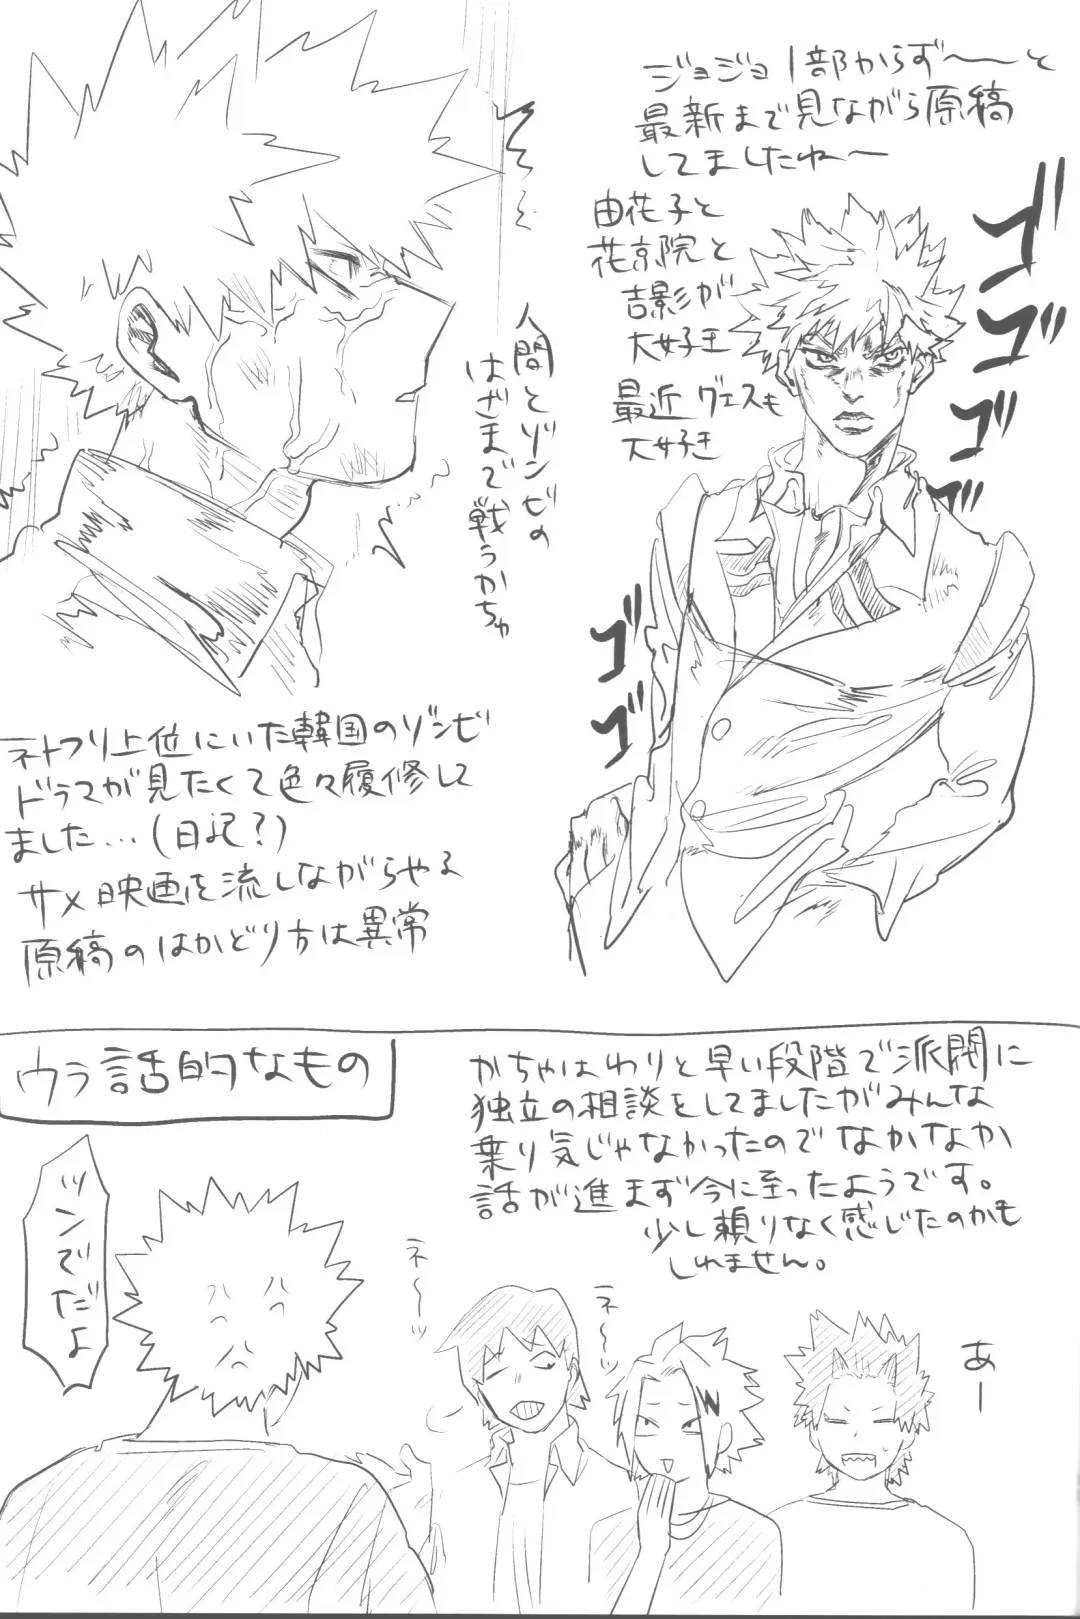 ジョジョ1部からず〜〜と
最新まで見ながら原稿
してましたねー
由花子と
花京院と
吉影が
大好き
最近グェスも
大好き
ゴゴゴゴ
ゴゴ
人間とゾンビの
はざまで戦うかちゃ
ネトフリ上位にいた韓国のゾンビ
ドラマが見たくて色々履修して
ました…(日記?)
サメ映画を流しながらやる
原稿のはかどり方は異常
ウラ話的なもの
かちゃはわりと早い段階で派閥に
独立の相談をしてましたがみんな
乗り気じゃなかったのでなかなか
話が進まず今に至ったようです。
少し頼りなく感じたのかも
しれません。
ツンでだよ
ネ〜
ネ〜
あー